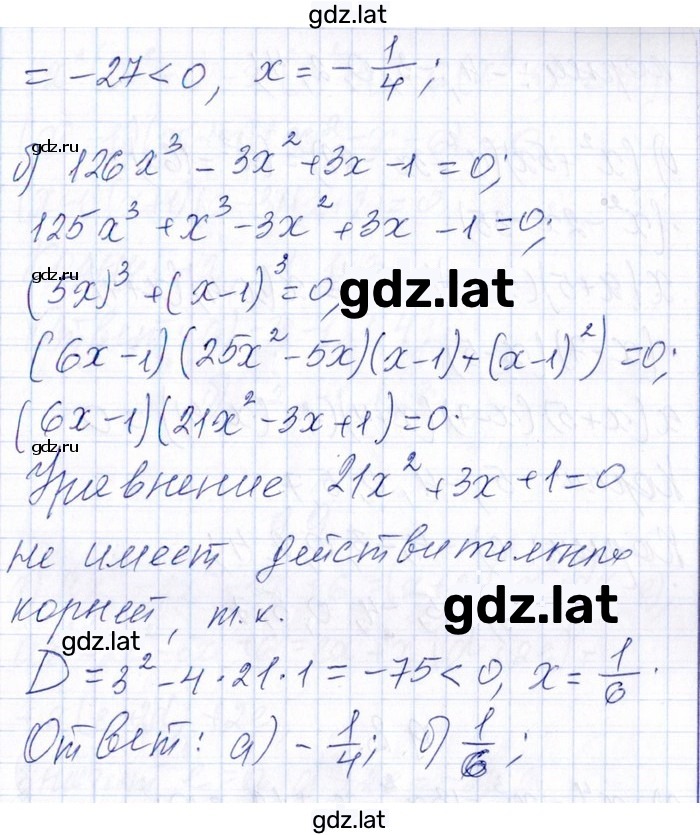 gdz.lat
= -27 < 0, x = -1/4;
gdz.ru
б) 126x³ - 3x² + 3x - 1 = 0;
125x³ + x³ - 3x² + 3x - 1 = 0;
gdz.ru
(5x)³ + (x-1)³ = 0,
gdz.lat
(6x-1)(25x² - 5x)(x-1) + (x-1)²) = 0;
(6x-1)(21x² - 3x + 1) = 0.
gdz.ru
Уравнение 21x² + 3x + 1 = 0
не имеет действительных
корней, т.к.
gdz.lat
gdz.lat
D = 3² - 4·21·1 = -75 < 0, x = 1/6.
Ответ: а) -1/4; б) 1/6;
gdz.lat